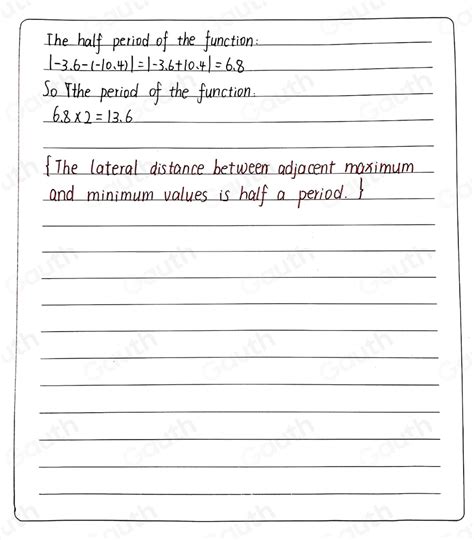 The half period of the function:
|-3.6-(-10.4)|=|-3.6+10.4|=6.8
So Tthe period of the function:
6.8×2=13.6
{The lateral distance between adjacent maximum
and minimum values is half a period.}
Gauth